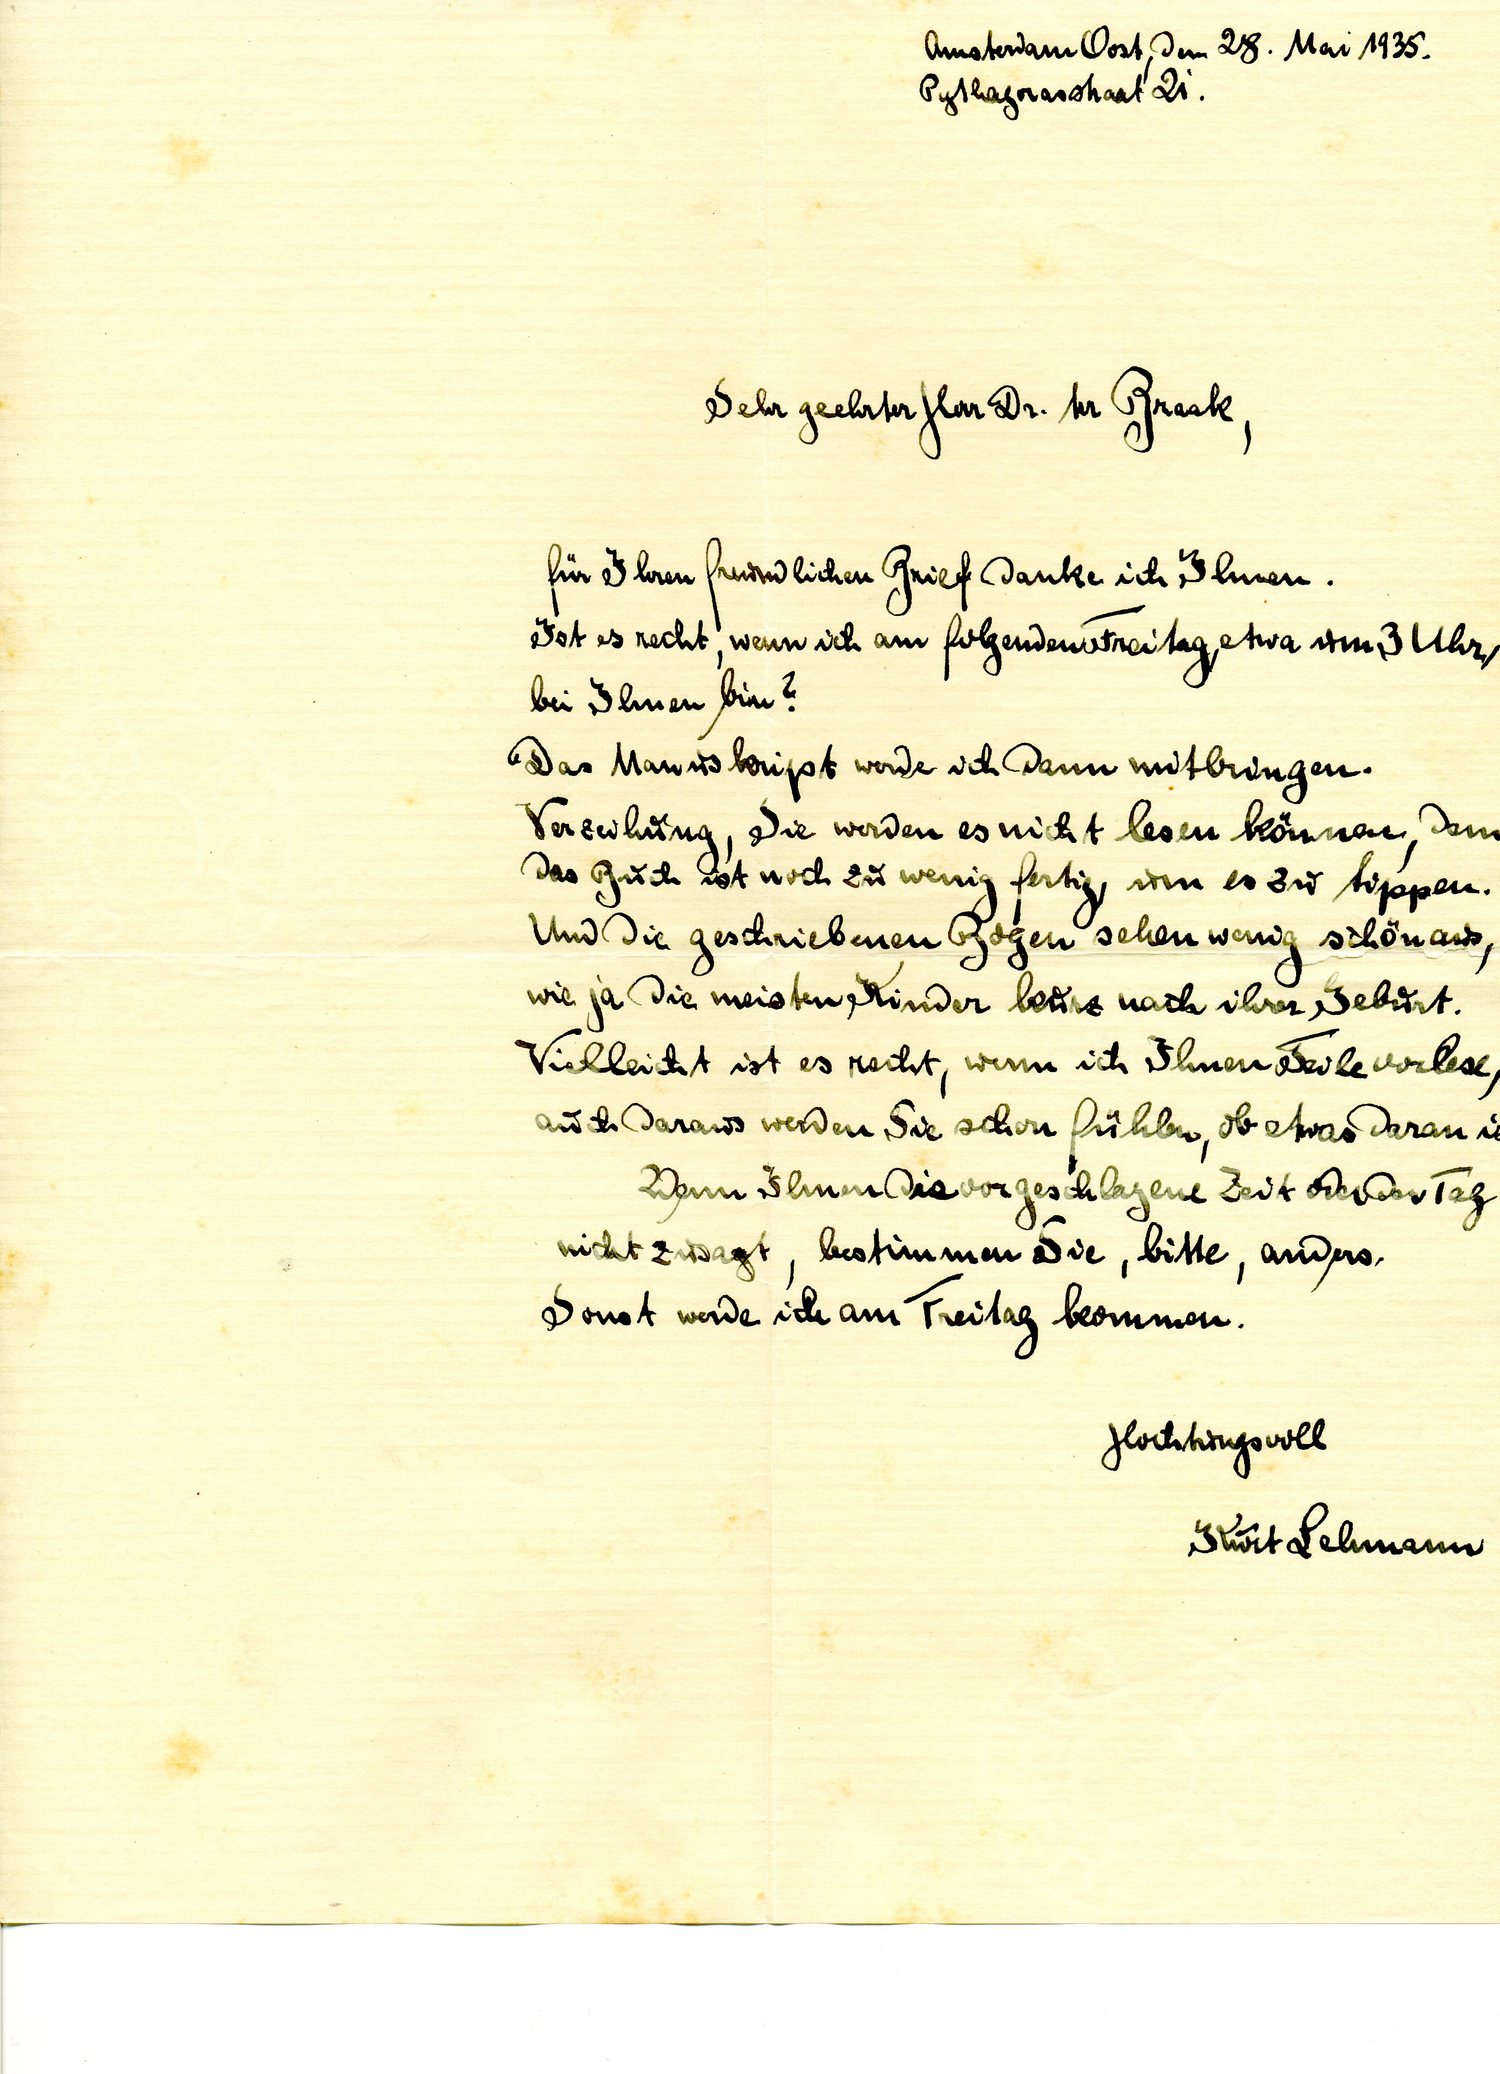 Amsterdam Oost, den 28. Mai 1935.
Pythagorasstraat 21.
Sehr geehrter Herr Dr. ter Braak,
für Ihren freundlichen Brief danke ich Ihnen.
Ist es recht, wenn ich am folgenden Freitag, etwa um 3 Uhr,
bei Ihnen bin?
Das Manuskript werde ich dann mitbringen.
Verzeihung, Sie werden es nicht lesen können, denn
das Buch ist noch zu wenig fertig, um es zu tippen.
Und die geschriebenen Bögen sehen wenig schön aus,
wie ja die meisten Kinder kurz nach ihrer Geburt.
Vielleicht ist es recht, wenn ich Ihnen Teile vorlese,
auch daraus werden Sie schon fühlen, ob etwas daran is
Wenn Ihnen die vorgeschlagene Zeit oder der Tag
nicht zusagt, bestimmen Sie, bitte, anders.
Sonst werde ich am Freitag kommen.
Hochtungsvoll
Kurt Lehmann